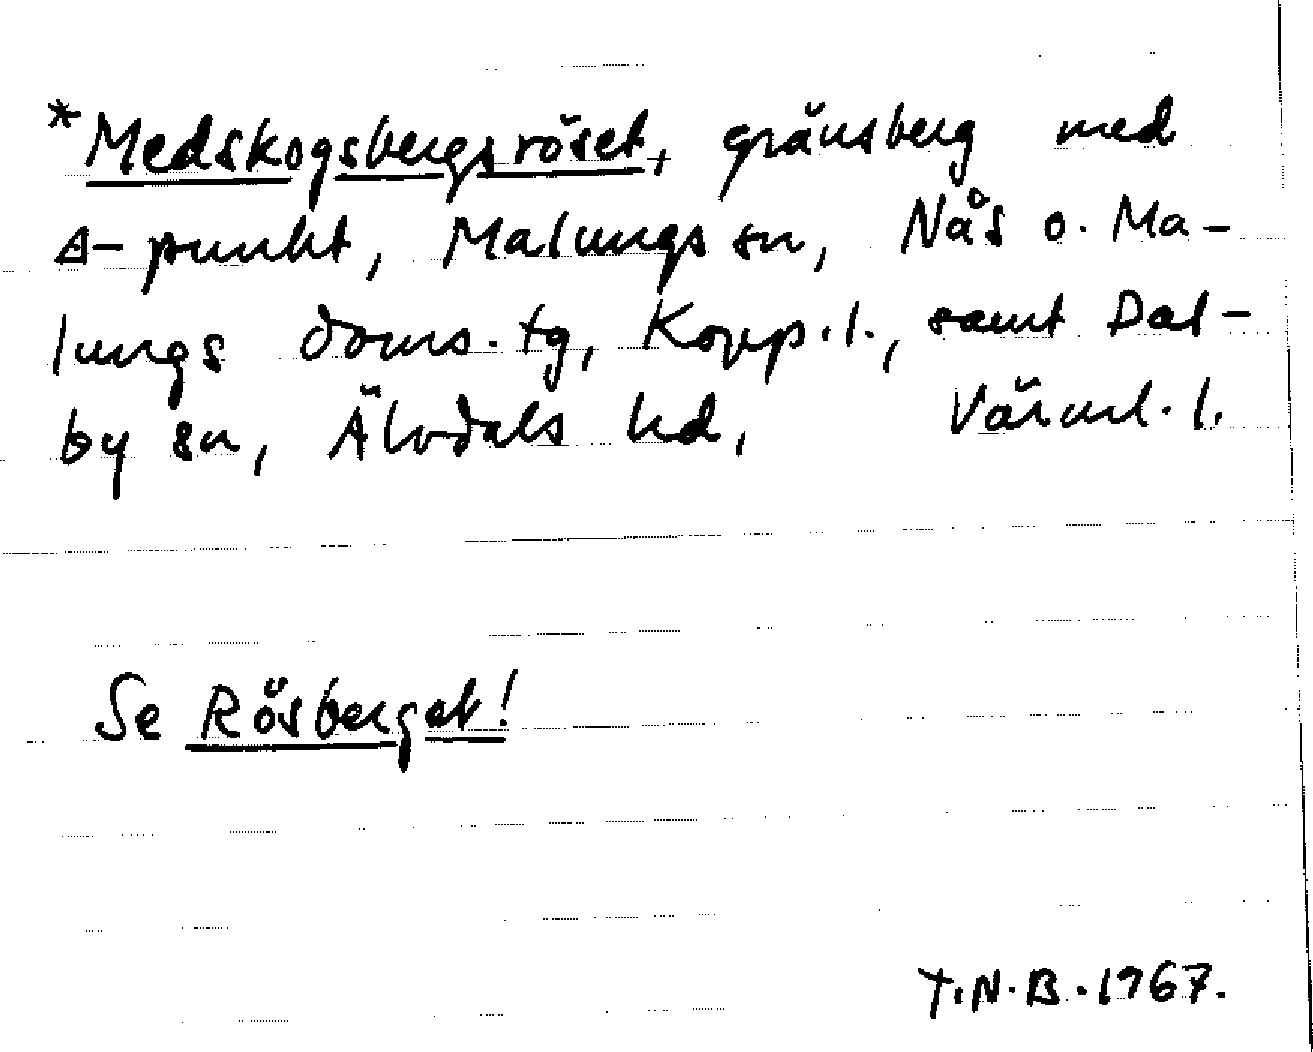 *Medskogsbergsröset, gränsberg med
Δ-punkt, Malungs sn, Nås o. Ma-
lungs doms. tg, Kopp. l., samt Dal-
by sn, Älvdals hd, Värml. l.
Se Rösberget!
T.N.B. 1967.